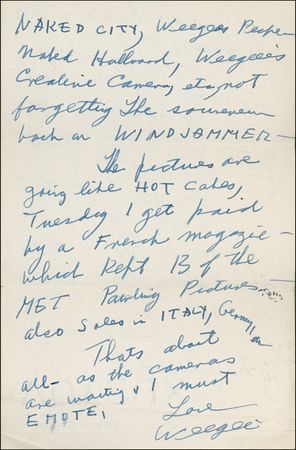 NAKED CITY, Weegees People
Naked Hollward, Weegee's
Creative Camera, etc, not
forgetting The souvenem
book on WINDJAMMER—
The pictures are
going like HOT Cakes,
Tuesday I get paid
by a French magazie—
which Kept 13 of the
MET Pawling Pictures—
also Sales in ITALY, Germany,
Thats about
all— as the cameras
are waiting & I must
EMOTE,
Love
Weegee